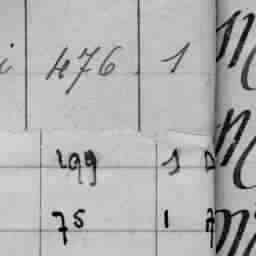 i 476 1
199 1
75 1